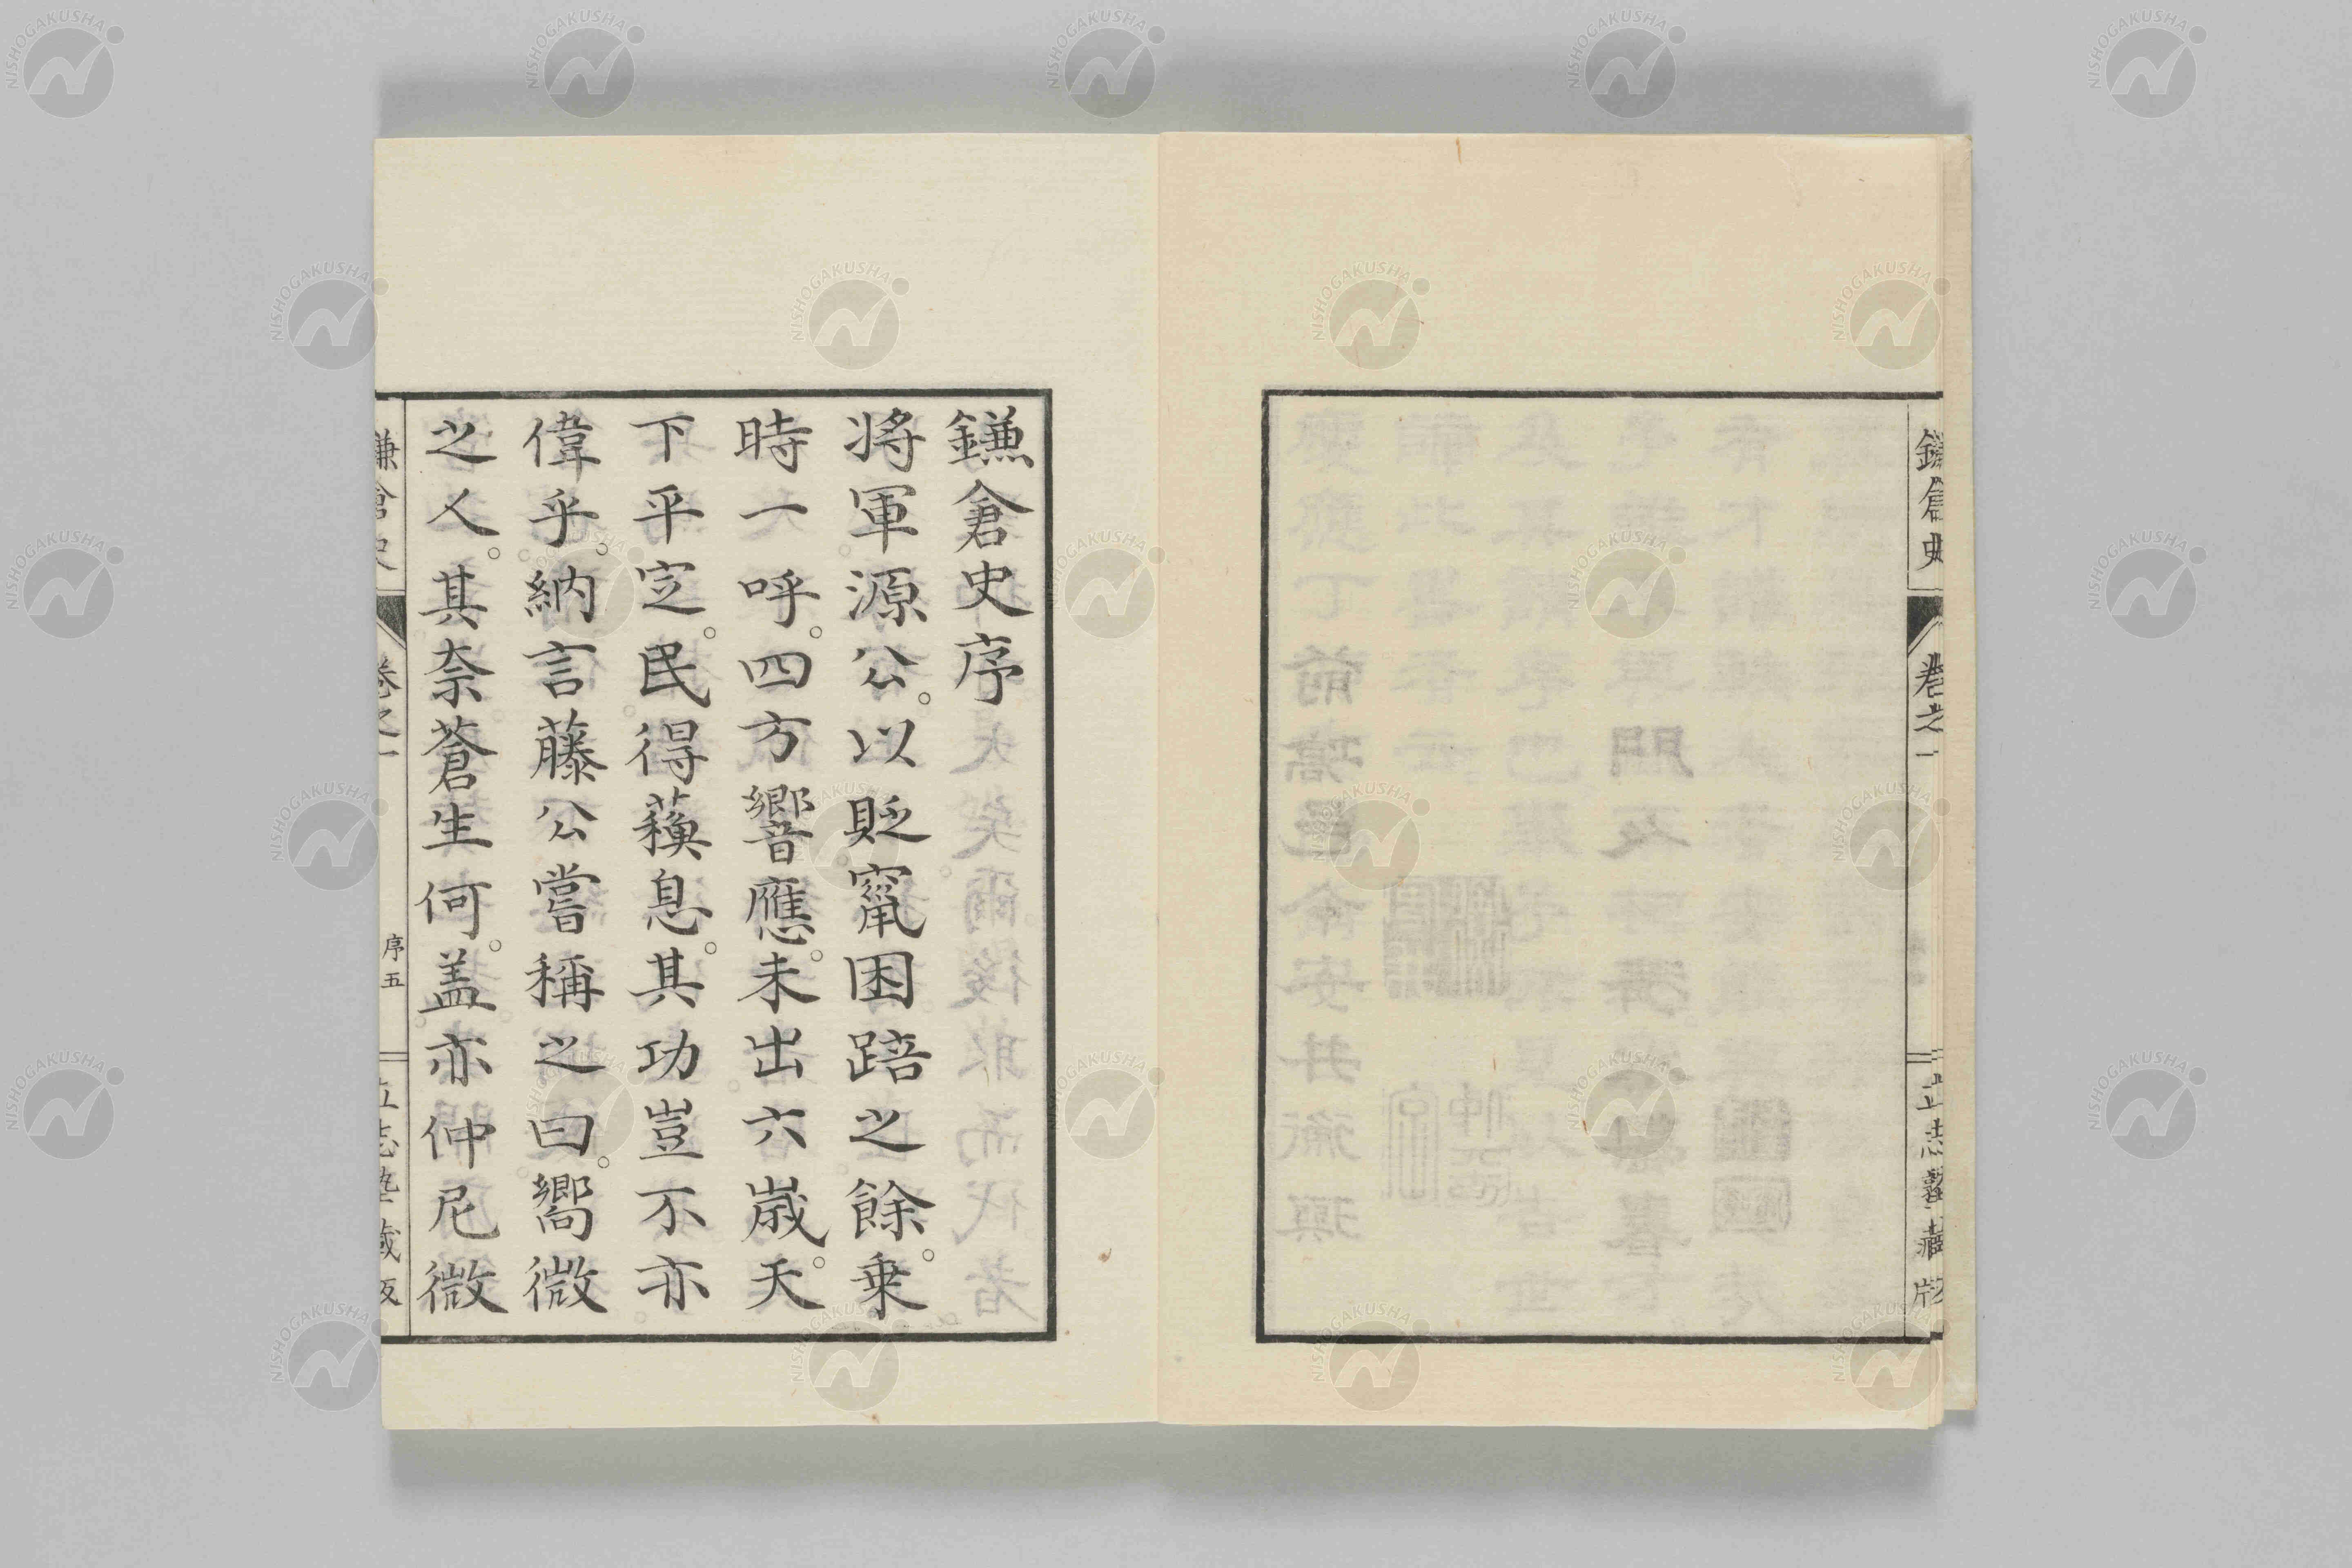 鎌倉史
卷之一
立志塾藏版
鎌倉史序
將軍源公。以貶竄困踣之餘。乗
時一呼。四方響應。未出六歳。天
下平定。民得蘓息。其功豈不亦
偉乎。納言藤公嘗稱之曰。嚮微
之人。其奈蒼生何。盖亦仲尼微
鎌倉史
卷之一
序五
立志塾藏版